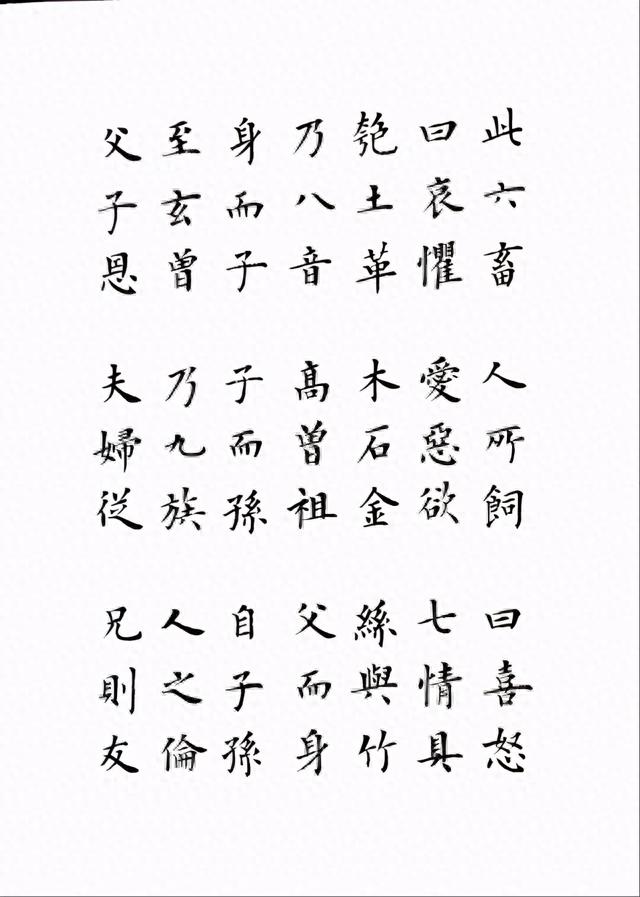 此六畜 人所飼 曰喜怒
曰哀懼 愛惡欲 七情具
匏土革 木石金 絲與竹
乃八音 高曾祖 父而身
身而子 子而孫 自子孫
至玄曾 乃九族 人之倫
父子恩 夫婦從 兄則友